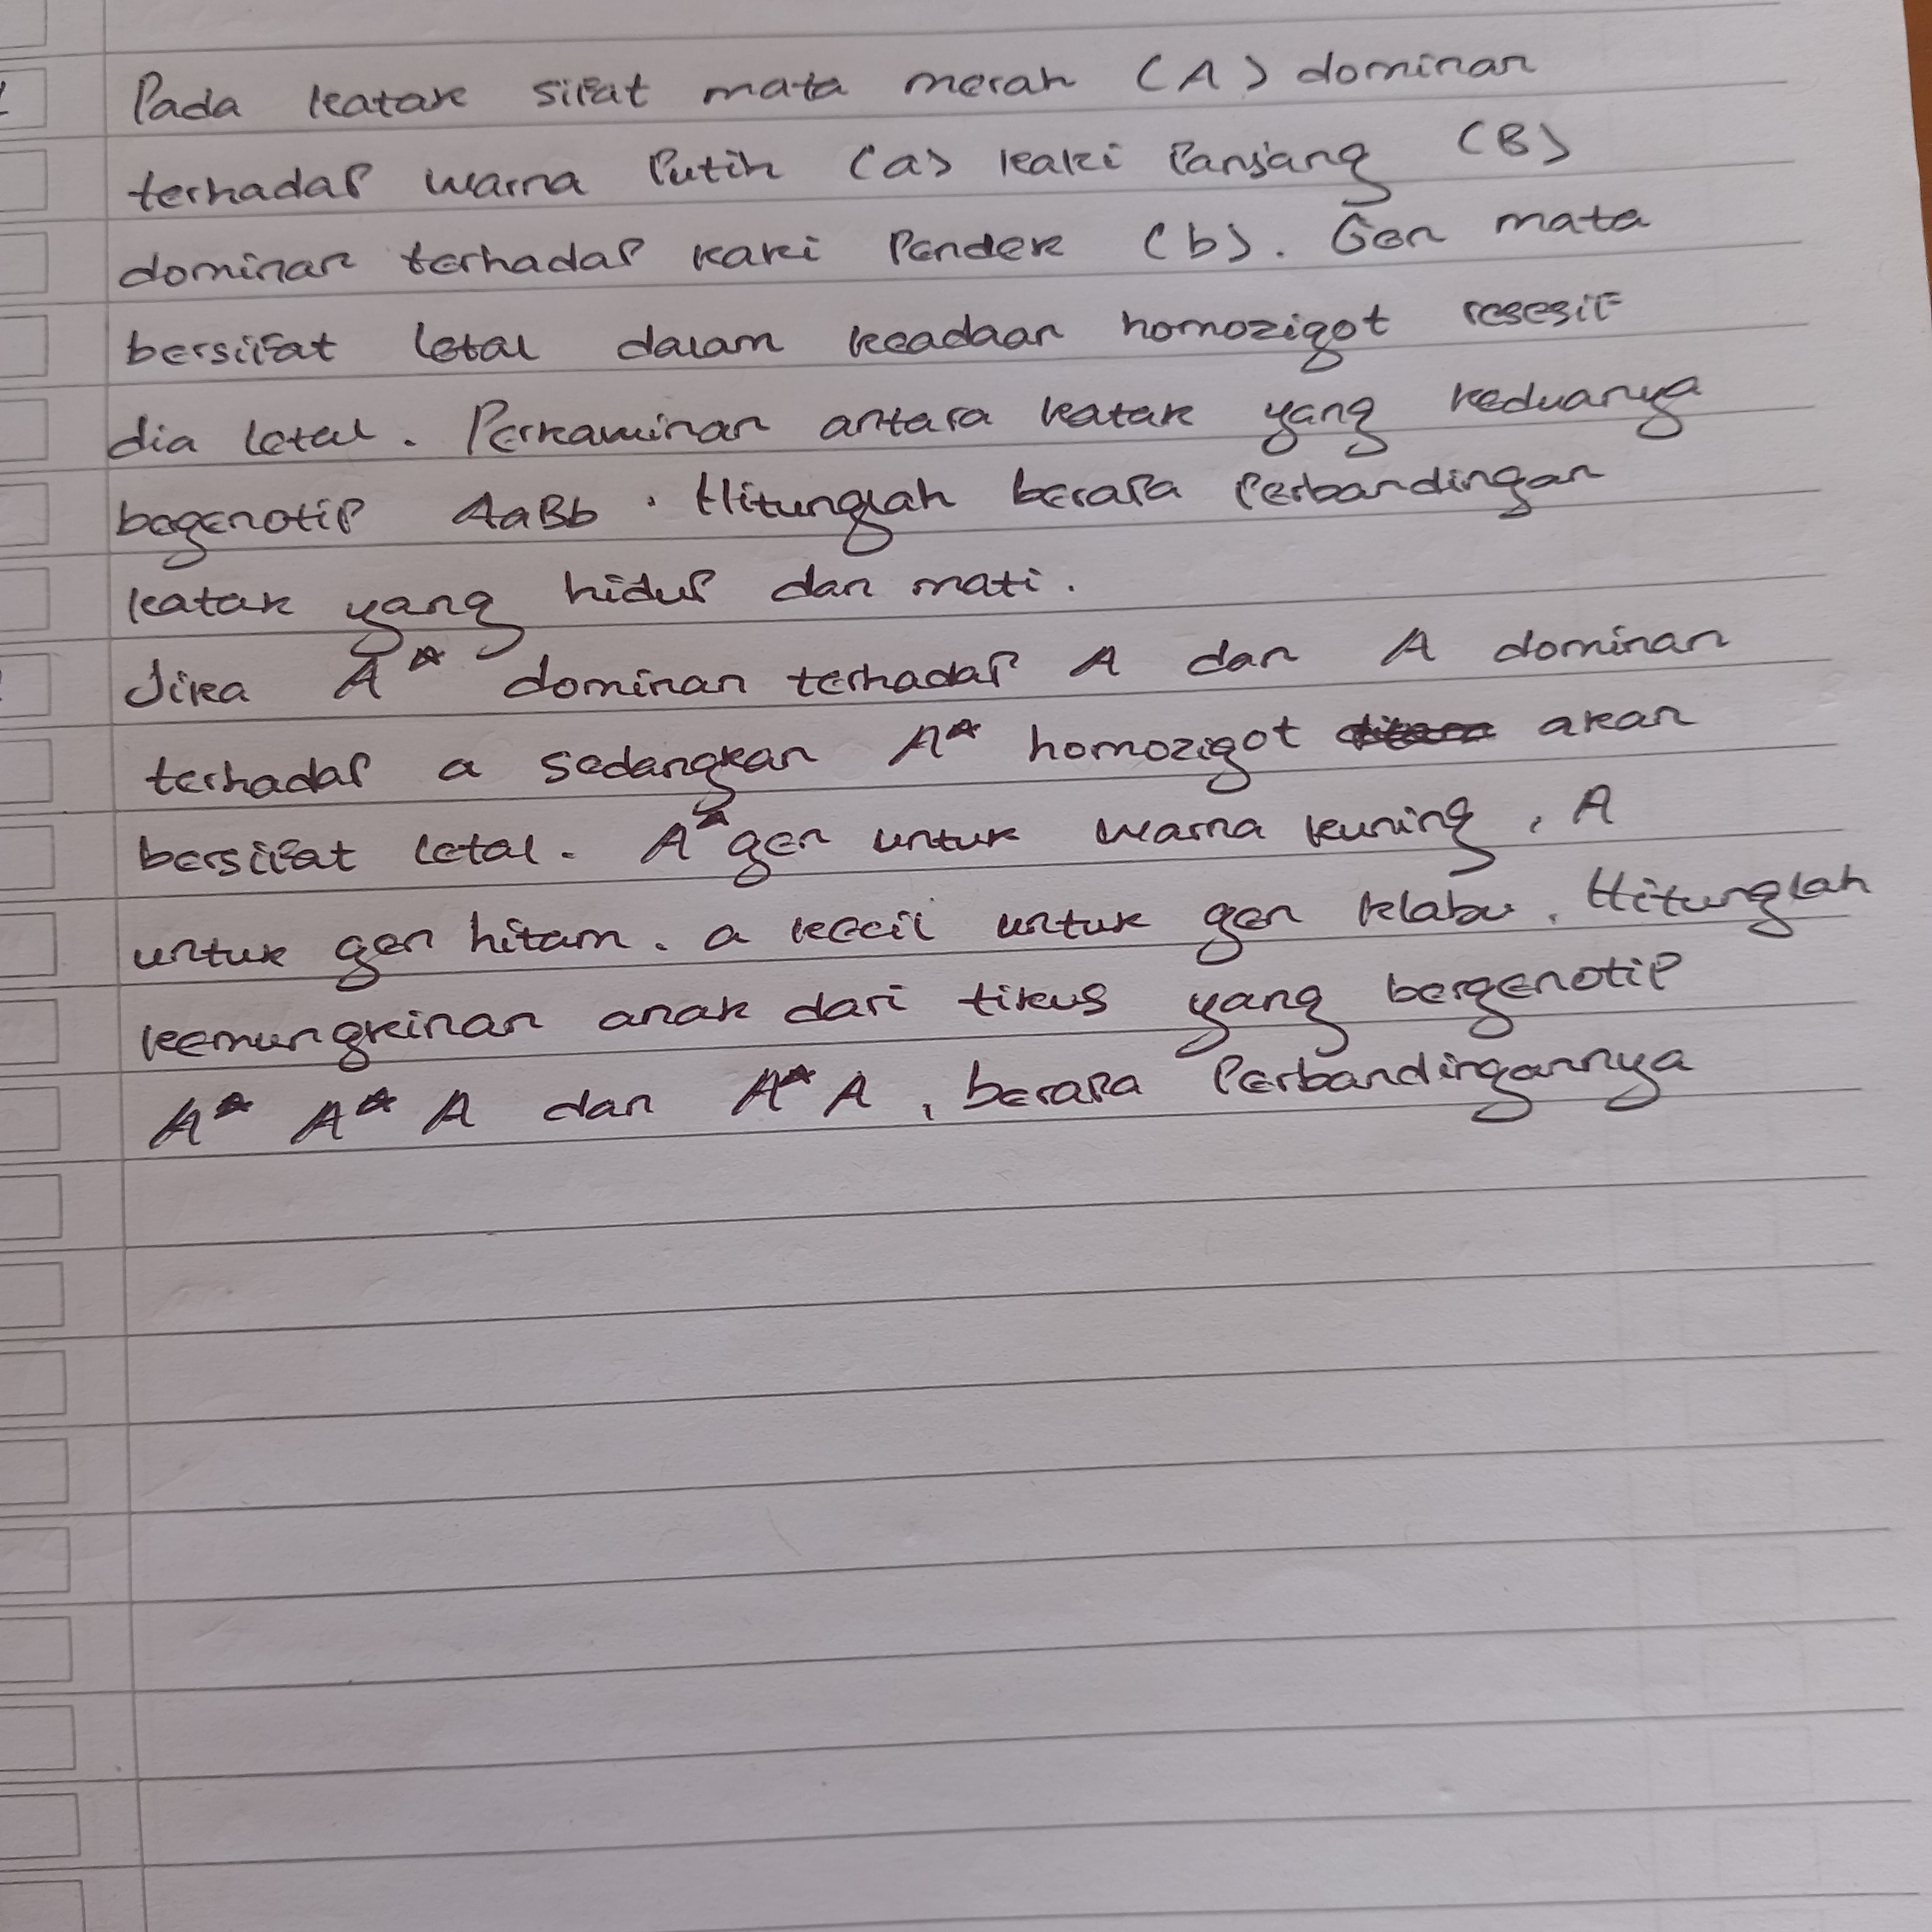 Pada katak sifat mata merah (A) dominan
terhadap warna Putih (a) kaki Panjang (B)
dominan terhadap kaki Pendek (b). Gen mata
bersifat letal dalam keadaan homozigot resesif
dia letal. Perkawinan antara katak yang keduanya
bagenotip AaBb. Hitunglah berapa Perbandingan
katak yang hidup dan mati.
Jika Aᴬ dominan terhadap A dan A dominan
terhadap a sedangkan Aᴬ homozigot akan
bersifat letal. Aᴬ gen untuk warna kuning, A
untuk gen hitam. a kecil untuk gen klabu. Hitunglah
kemungkinan anak dari tikus yang bergenotip
Aᴬ Aᴬ A dan Aᴬ A, berapa Perbandingannya